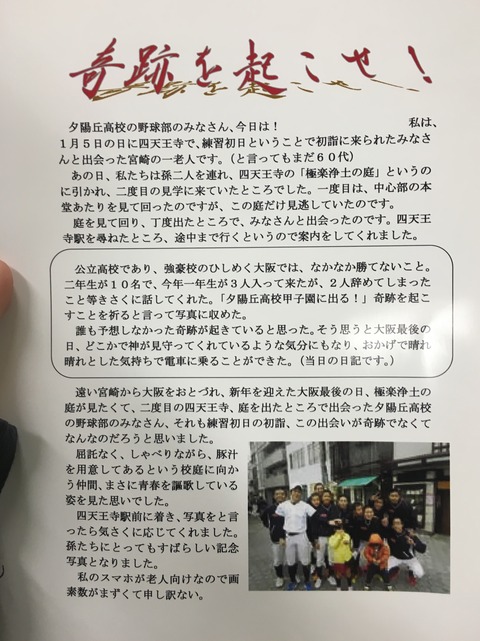 奇跡を起こせ！
夕陽丘高校の野球部のみなさん、今日は！　私は、
１月５日の日に四天王寺で、練習初日ということで初詣に来られたみなさ
んと出会った宮崎の一老人です。（と言ってもまだ６０代）
あの日、私たちは孫二人を連れ、四天王寺の「極楽浄土の庭」というの
に引かれ、二度目の見学に来ていたところでした。一度目は、中心部の本
堂あたりを見て回ったのですが、この庭だけ見逃していたのです。
庭を見て回り、丁度出たところで、みなさんと出会ったのです。四天王
寺駅を尋ねたところ、途中まで行くというので案内をしてくれました。
公立高校であり、強豪校のひしめく大阪では、なかなか勝てないこと。
二年生が１０名で、今年一年生が３人入って来たが、２人辞めてしまった
こと等きさくに話してくれた。「夕陽丘高校甲子園に出る！」奇跡を起こ
すことを祈ると言って写真に収めた。
誰も予想しなかった奇跡が起きていると思った。そう思うと大阪最後の
日、どこかで神が見守ってくれているような気分にもなり、おかげで晴れ
晴れとした気持ちで電車に乗ることができた。（当日の日記です。）
遠い宮崎から大阪をおとづれ、新年を迎えた大阪最後の日、極楽浄土の
庭が見たくて、二度目の四天王寺、庭を出たところで出会った夕陽丘高校
の野球部のみなさん、それも練習初日の初詣、この出会いが奇跡でなくて
なんなのだろうと思いました。
屈託なく、しゃべりながら、豚汁
を用意してあるという校庭に向か
う仲間、まさに青春を謳歌している
姿を見た思いでした。
四天王寺駅前に着き、写真をと言
ったら気さくに応じてくれました。
孫たちにとってもすばらしい記念
写真となりました。
私のスマホが老人向けなので画
素数がまずくて申し訳ない。